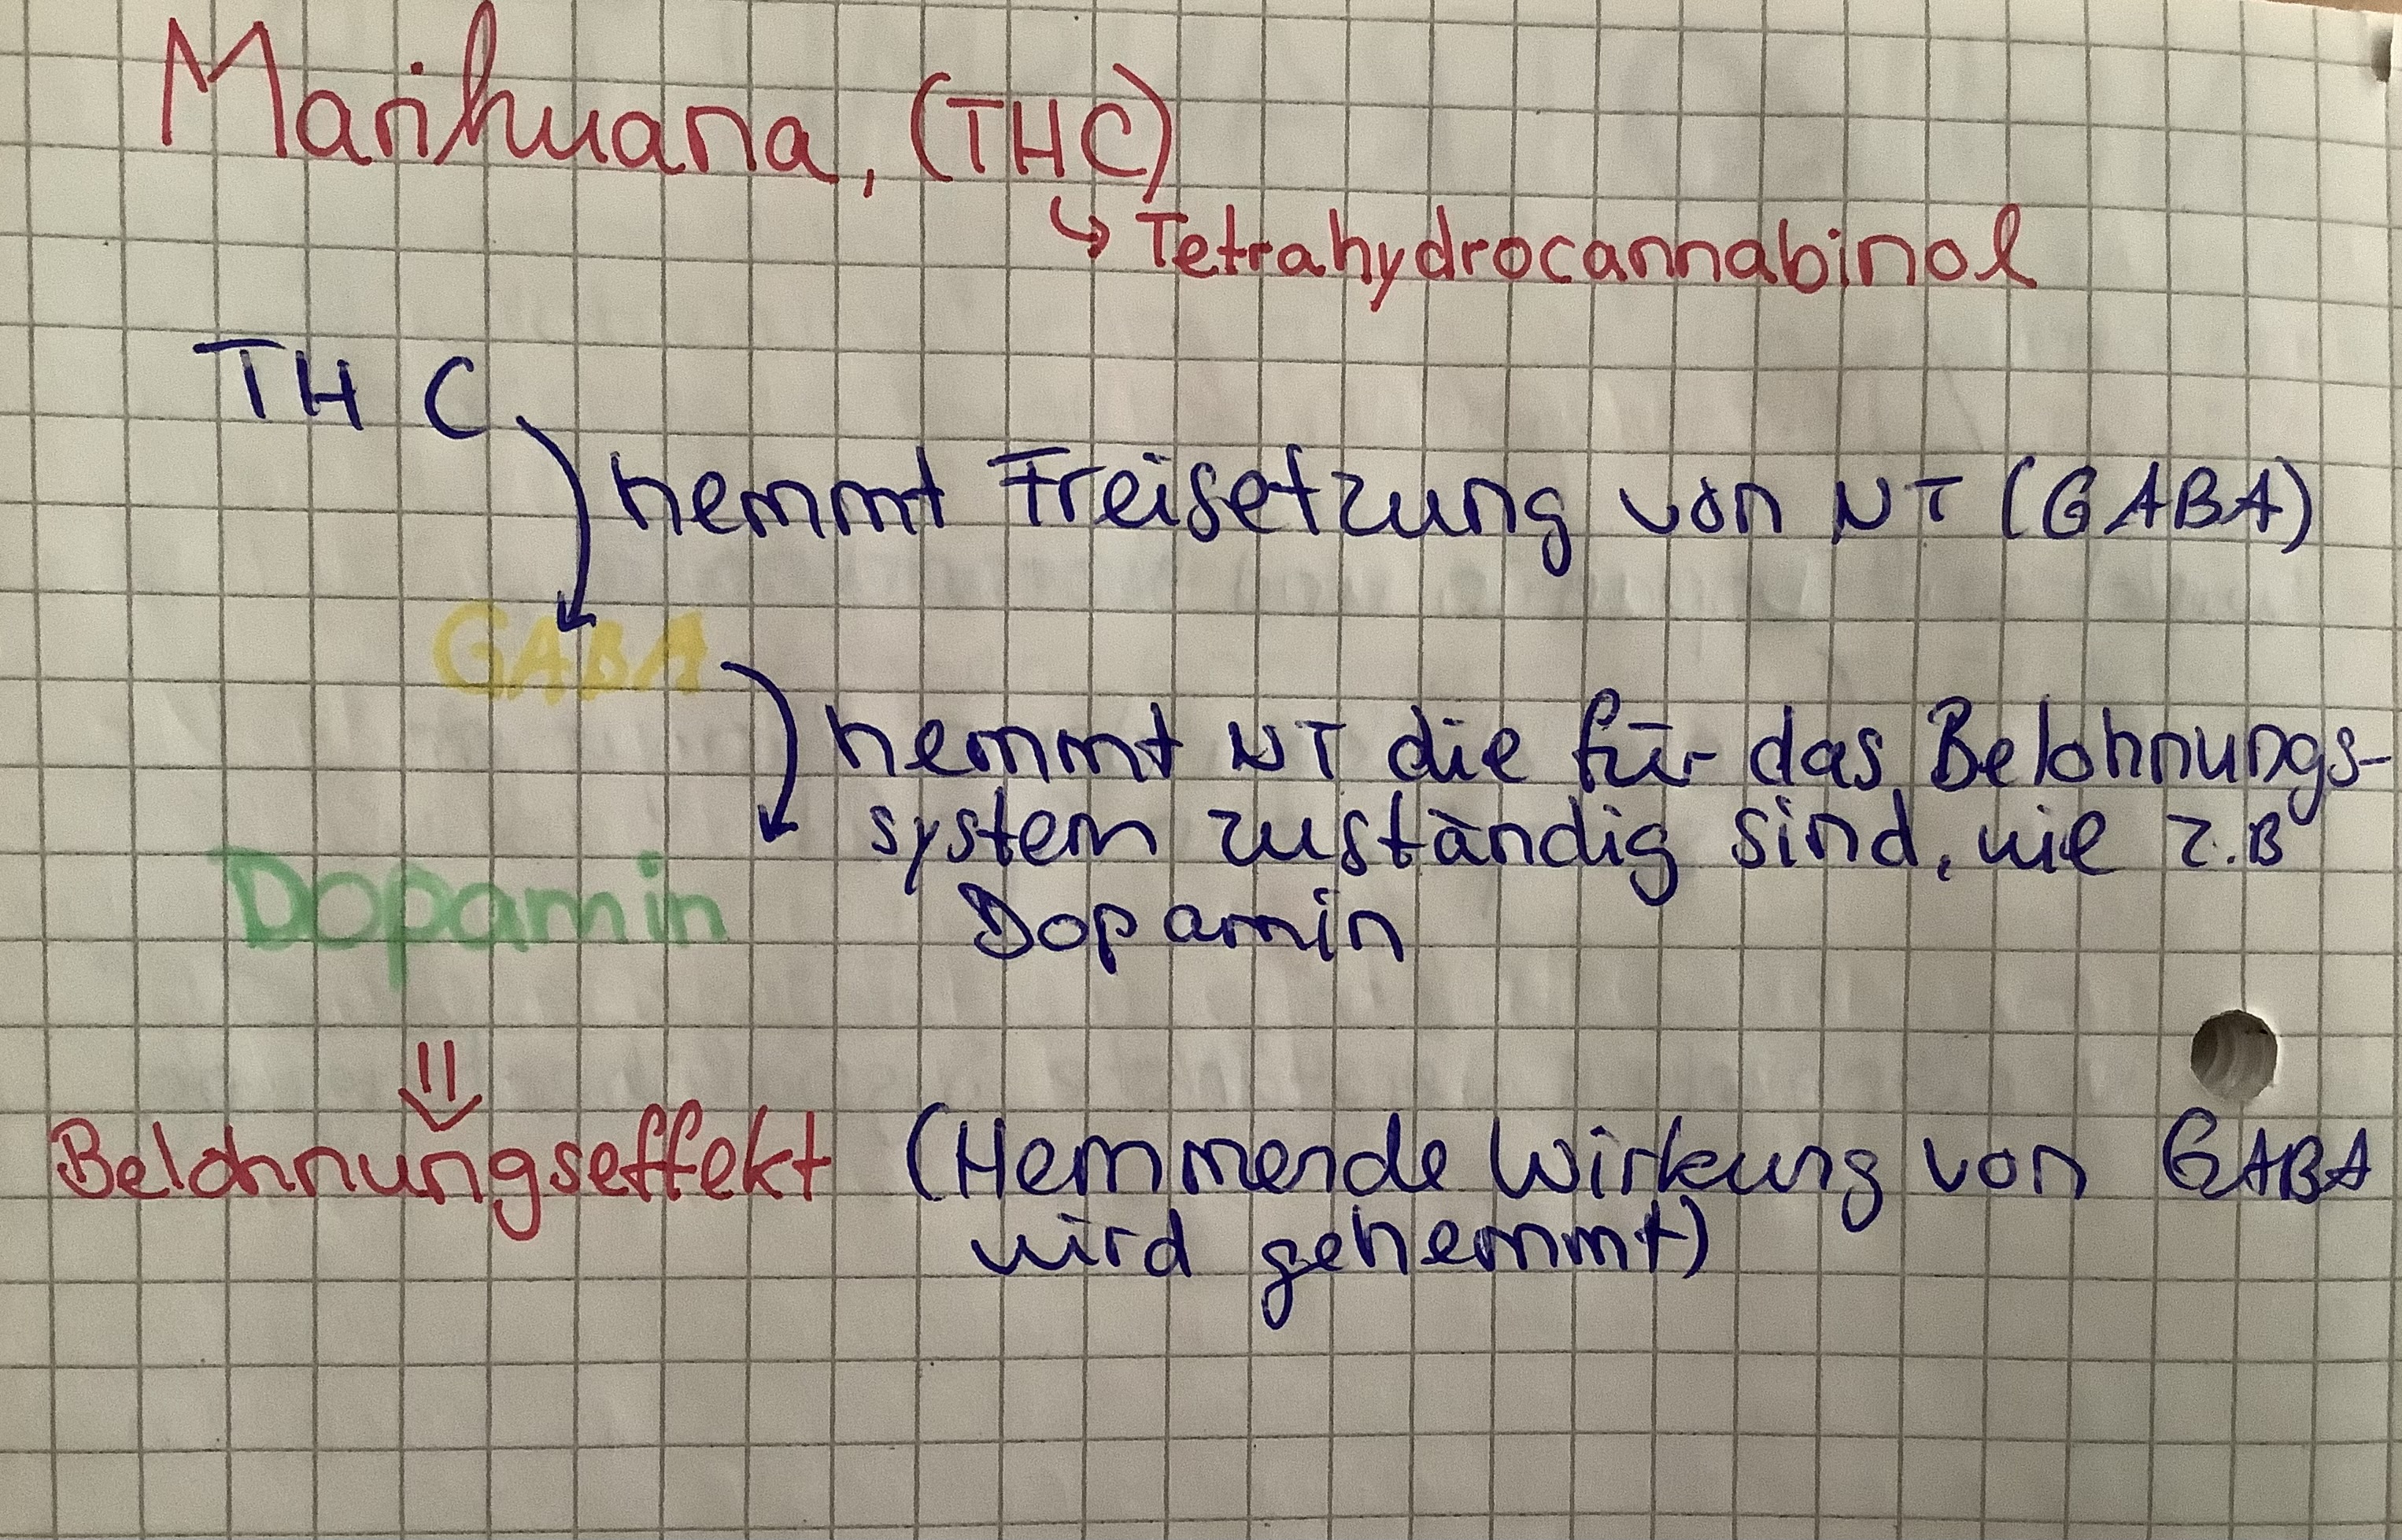 Marihuana, (THC)
↳ Tetrahydrocannabinol
THC
hemmt Freisetzung von NT (GABA)
GABA
hemmt NT die für das Belohnungs-
system zuständig sind, wie z.B
Dopamin
Dopamin
⇓
Belohnungseffekt (Hemmende Wirkung von GABA
wird gehemmt)